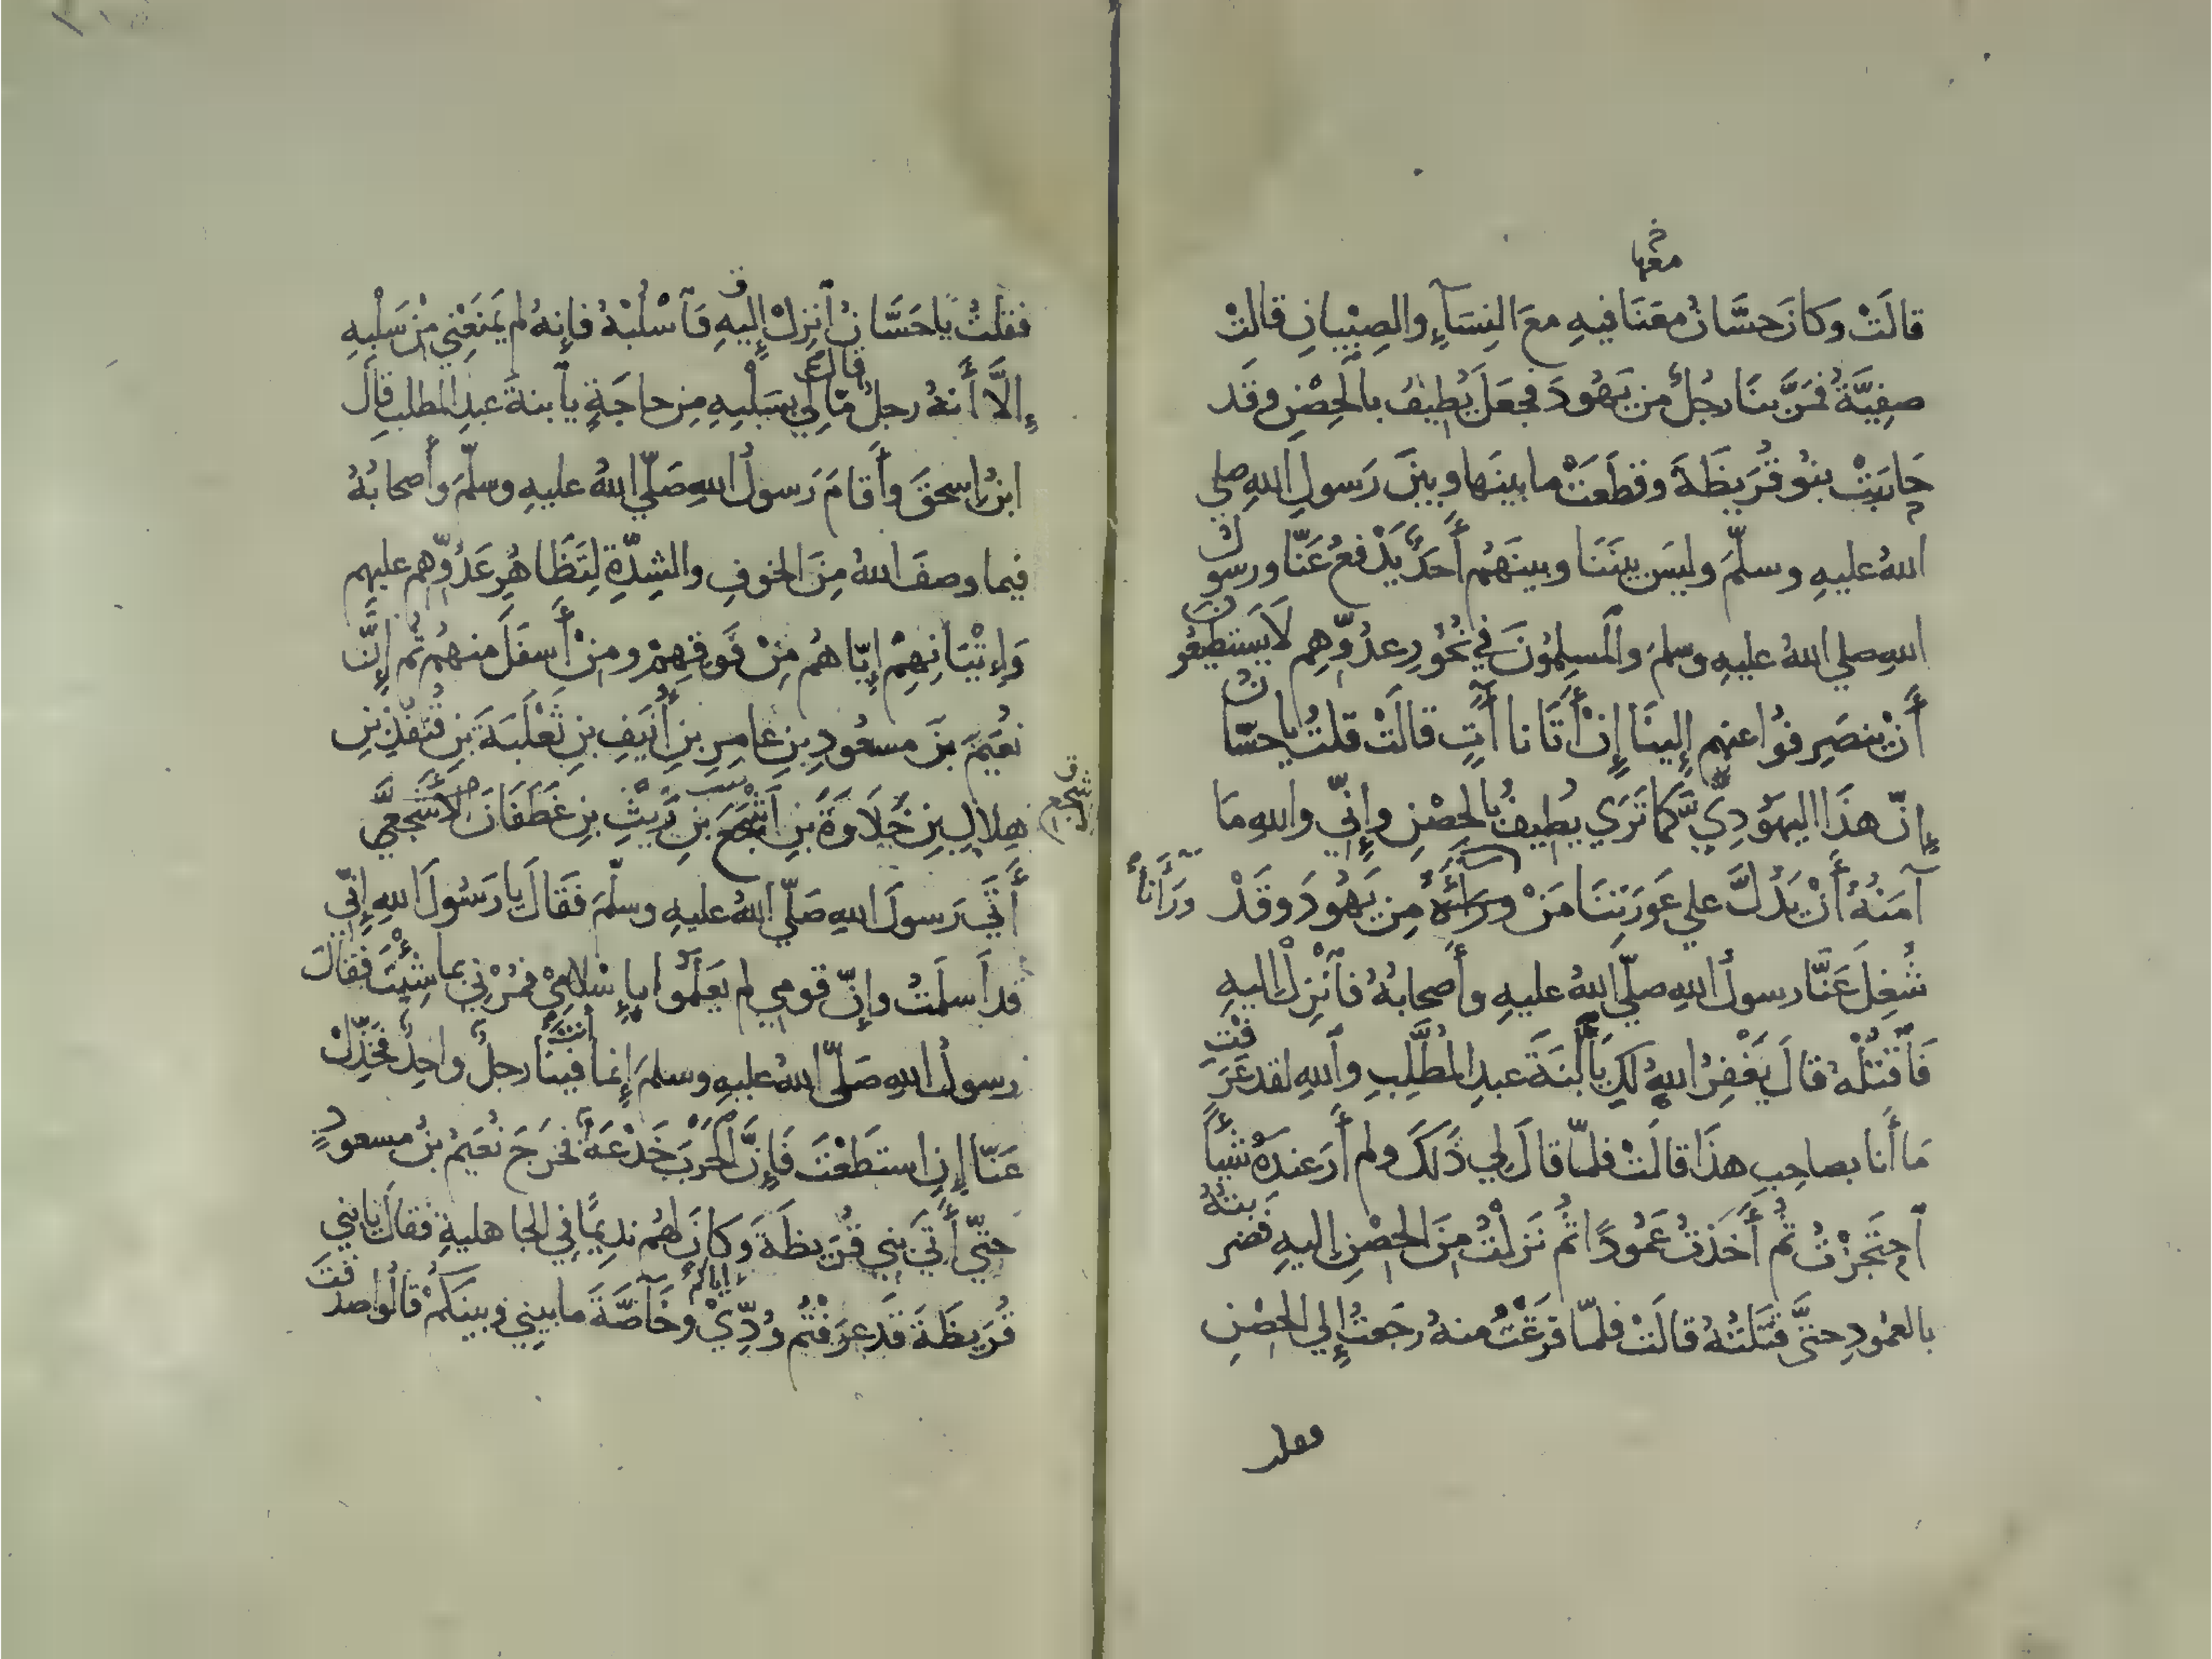 معها
قالَتْ وكانَ حسَّانُ معَنَا فيهِ معَ النِسَآءِ والصِبْيانِ قالتْ
صفِيَّةُ فمَرَّ بنَا رجُلٌ من يَهُودَ فجعَلَ يُطِيفُ بالحِصْنِ وقَد
حارَبَتْ بنُو قُرَيظَةَ وقطَعَتْ ما بينَها وبينَ رَسولِ اللهِ صلي
اللهُ عليهِ وسلّمَ وليسَ بينَنَا وبينَهُم أَحَدٌ يَدْفعُ عَنّا ورسول
اللهِ صلي اللهُ عليهِ وسلمَ والمسلِمُونَ في نُحُورِ عدُوِّهِم لَا يَستطيعُون
أَنْ ينصَرِفُوا عنهم إِلينَا إِنْ أَتَانا آتٍ قالَتْ قلتُ يا حسّان
إِنّ هذَا اليهُودِيَّ كَما تَرَي يُطِيفُ بالحِصْنِ وإِنِّي واللهِ مَا
آمَنُهُ أَنْ يَدُلَّ علي عَورَتِنَا مَنْ ورائَهُ مِن يَهُودَ وقَدْ
وَرَاْنَا
شُغِلَ عَنَّا رسولُ اللهِ صلّي اللهُ عليهِ وأَصحابُهُ فاْنْزِلْ إليهِ
فَاْقتُلْهُ قالَ يَغْفِرُ اللهُ لَكِ يَا اْبْنَةَ عبدِ المُطَّلِبِ واللهِ لقد عَرَفْتِ
مَا أَنا بصاحِبِ هذَا قالَتْ فلمّا قالَ لِي ذَلكَ ولم أَرَ عندَهُ شَيْأً
اْحتَجَزْتُ ثُم أَخَذتُ عَمُودًا ثُم نَزلْتُ مِنَ الحِصْنِ إِليهِ فضربتُهُ
بالعمُودِ حتَّى قتَلتُهُ قالَتْ فلمّا فرَغْتُ منهُ رجَعتُ إِلي الحصْنِ
فقلت
فقلتُ يا حَسَّانُ اْنزِلْ إِليهِ فَاْسْلُبْهُ فإِنهُ لم يَمنَعْنِي مِنْ سَلْبِهِ
إِلَّا أَنهُ رجلٌ قالَ مَا لِي بسَلْبِهِ مِن حاجَةٍ يا بنةَ عبدِ المطلبِ قالَ
ابنُ إِسحقَ وأَقامَ رَسولُ اللهِ صَلّي اللهُ عليهِ وسلّمَ وأَصحابُهُ
فيما وصفَ اللهُ مِنَ الخوفِ والشِدّةِ لِتَظَاهُرِ عَدُوِّهِم عليهِم
وَإِتْيَانِهِمْ إِيّاهُم مِنْ فَوقِهِمْ ومِنْ أَسفَلَ منهُم ثُم إِنَّ
نُعَيمَ بنَ مسعُودِ بنِ عامِرِ بنِ أُنَيفِ بنِ ثَعْلَبَةَ بنِ قُنفُذِ بنِ
هِلالِ بنِ خُلَاوَةَ بنِ أَشْجَعَ بنِ رَيْثِ بنِ غَطَفَانَ الأَشجَعِيَّ
أَتَي رَسولَ اللهِ صَلّي اللهُ عليهِ وسلّمَ فَقالَ يا رَسُولَ اللهِ إِنِّي
قد أَسلَمْتُ وإِنّ قومِي لم يَعلَمُوا بإِسْلامِي فمُرْنِي بما شِئْتَ فقالَ
رسولُ اللهِ صَلّي اللهُ عليهِ وسلمَ إِنما أنتَ فينَا رجلٌ واحِدٌ فخَذِّلْ
عَنّا إِنِ استَطَعْتَ فَإِنَّ الحَرْبَ خَدْعَةٌ فخَرَجَ نُعَيمُ بنُ مسعودٍ
حتّي أَتَي بَنِي قُرَيظَةَ وكانَ لهُم نديمًا في الجاهليةِ فقالَ يا بَنِي
قُرَيظَةَ قَد عرَفْتُم وُدِّيْ إياكم وخَاصَّةَ ما بينِي وبينَكُمْ قالُوا صدَقتَ